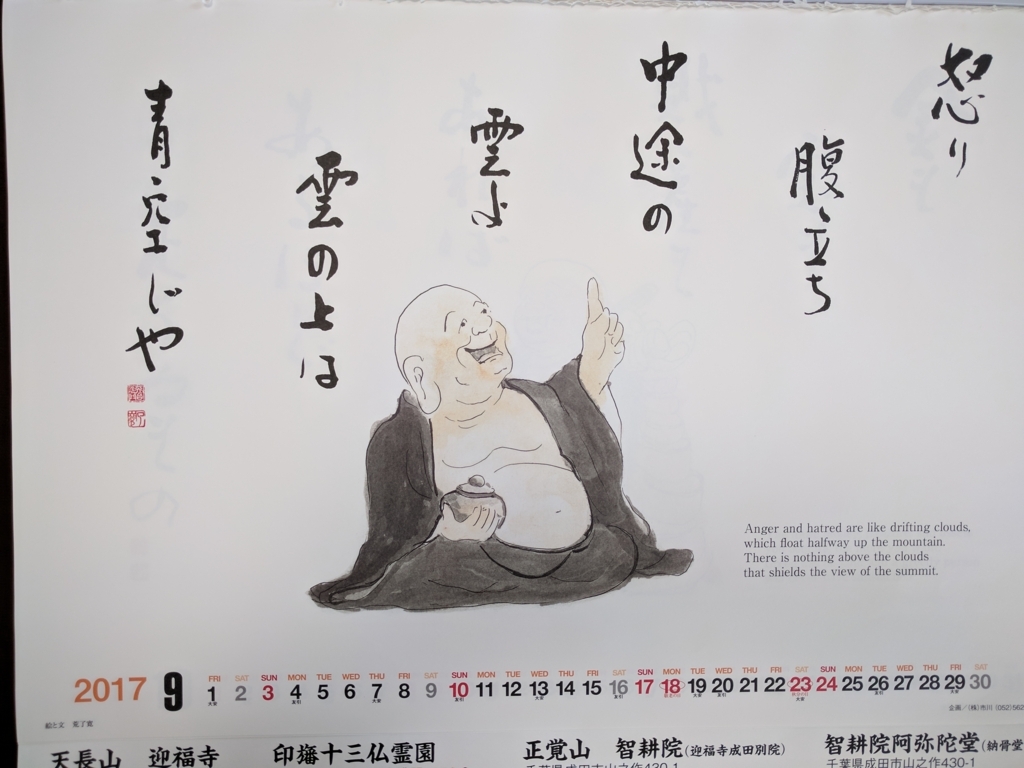 怒り
腹立ち
中途の
雲よ
雲の上は
青空じや
Anger and hatred are like drifting clouds,
which float halfway up the mountain.
There is nothing above the clouds
that shields the view of the summit.
2017 9
FRI SAT SUN MON TUE WED THU FRI SAT SUN MON TUE WED THU FRI SAT SUN MON TUE WED THU FRI SAT SUN MON TUE WED THU FRI SAT
1 2 3 4 5 6 7 8 9 10 11 12 13 14 15 16 17 18 19 20 21 22 23 24 25 26 27 28 29 30
大安 友引 大安 友引 大安 大安 友引 友引 大安
企画/(株)市川 (052)562
絵と文
天長山 迎福寺 印旛十三仏霊園 正覚山 智耕院(迎福寺成田別院) 智耕院阿弥陀堂(納骨堂
千葉県成田市山之作430-1 千葉県成田市山之作430-1